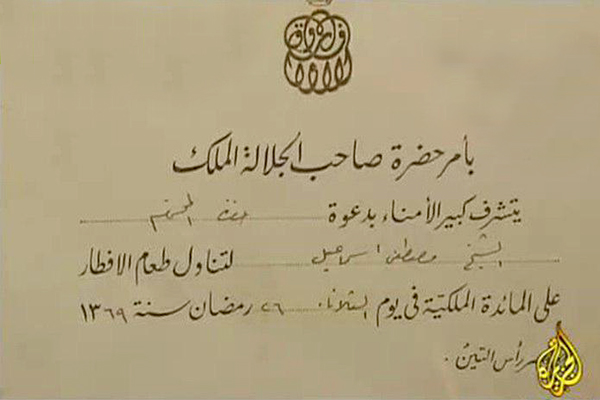 فاروق
بأمر حضرة صاحب الجلالة الملك
يتشرف كبير الأمناء بدعوة حضرة المحترم
الشيخ مصطفى اسماعيل لتناول طعام الافطار
على المائدة الملكية في يوم الثلاثاء ٢٦ رمضان سنة ١٣٦٩
رأس التين .
الجزيرة